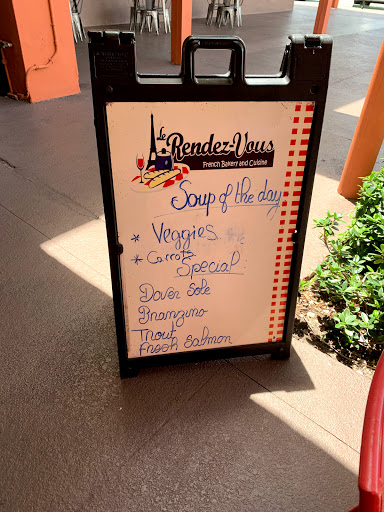 Le Rendez-Vous
French Bakery and Cuisine
Soup of the day
* Veggies
* Carrots
Special
Dover Sole
Branzino
Trout
Fresh Salmon